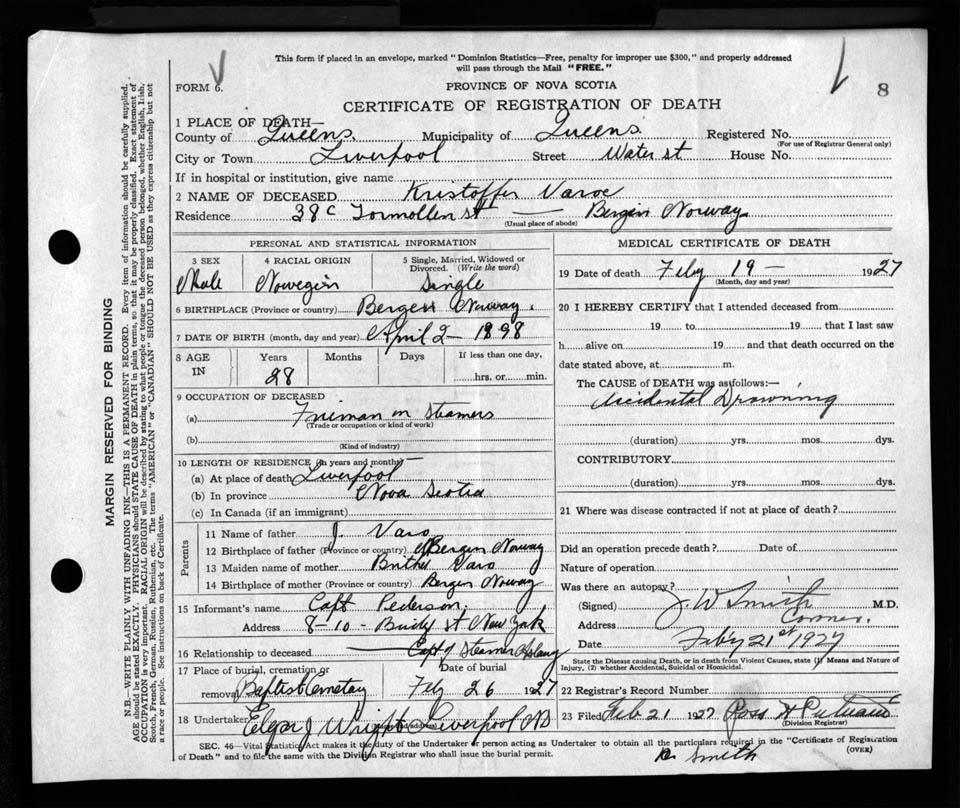 This form if placed in an envelope, marked "Dominion Statistics—Free, penalty for improper use $300," and properly addressed
will pass through the Mail "FREE."
FORM 6.
PROVINCE OF NOVA SCOTIA
8
CERTIFICATE OF REGISTRATION OF DEATH
1 PLACE OF DEATH—
County of Queens. Municipality of Queens. Registered No.
(For use of Registrar General only)
City or Town Liverpool Street Water st House No.
If in hospital or institution, give name
2 NAME OF DECEASED Kristoffer Varoe
Residence 38c Tormollen st — Bergin Norway
(Usual place of abode)
PERSONAL AND STATISTICAL INFORMATION
3 SEX 4 RACIAL ORIGIN 5 Single, Married, Widowed or Divorced. (Write the word)
Male Nowegin Single
6 BIRTHPLACE (Province or country) Bergen Norway.
7 DATE OF BIRTH (month, day and year) April 2 – 1898
8 AGE IN Years Months Days If less than one day,
28 hrs. or min.
9 OCCUPATION OF DECEASED
(a) Fireman on Steamers
(Trade or occupation or kind of work)
(b)
(Kind of industry)
10 LENGTH OF RESIDENCE (in years and months)
(a) At place of death Liverpool
(b) In province Nova Scotia
(c) In Canada (if an immigrant)
Parents
11 Name of father J. Varo
12 Birthplace of father (Province or country) Bergin Norway
13 Maiden name of mother Varo
14 Birthplace of mother (Province or country) Bergin Norway
15 Informant's name Capt Pederson,
Address 8-10- st New York
16 Relationship to deceased Capt of Steamer
17 Place of burial, cremation or removal Date of burial
Baptist Cemetay Feb 26 1927
18 Undertaker Elgar J Wright Liverpool NS
MEDICAL CERTIFICATE OF DEATH
19 Date of death Feby 19 – 1927
(Month, day and year)
20 I HEREBY CERTIFY that I attended deceased from
19 to 19 that I last saw
h alive on 19 and that death occurred on the
date stated above, at m.
The CAUSE of DEATH was as follows:—
Accidental Drowning
(duration) yrs. mos. dys.
CONTRIBUTORY
(duration) yrs. mos. dys.
21 Where was disease contracted if not at place of death?
Did an operation precede death? Date of
Nature of operation
Was there an autopsy?
(Signed) J W Smith M.D.
Address Corner.
Date Feby 21st 1927
State the Disease causing Death, or in death from Violent Causes, state (1) Means and Nature of
Injury, (2) whether Accidental, Suicidal or Homicidal.
22 Registrar's Record Number
23 Filed Feb 21 1927
(Division Registrar)
SEC. 46—Vital Statistics Act makes it the duty of the Undertaker or person acting as Undertaker to obtain all the particulars required in the "Certificate of Registration
of Death" and to file the same with the Division Registrar who shall issue the burial permit. (OVER)
Dr Smith
MARGIN RESERVED FOR BINDING
N.B.—WRITE PLAINLY WITH UNFADING INK—THIS IS A PERMANENT RECORD. Every item of information should be carefully supplied.
AGE should be stated EXACTLY. PHYSICIANS should STATE CAUSE OF DEATH in plain terms, so that it may be properly classified. Exact statement of
OCCUPATION is very important. RACIAL ORIGIN will be described by stating to what people or tongue the deceased person belonged, whether English, Irish,
Scotch, French, German, Russian, Ruthenian, etc. The terms "AMERICAN" or "CANADIAN" SHOULD NOT BE USED as they express citizenship but not
a race or people. See instructions on back of Certificate.